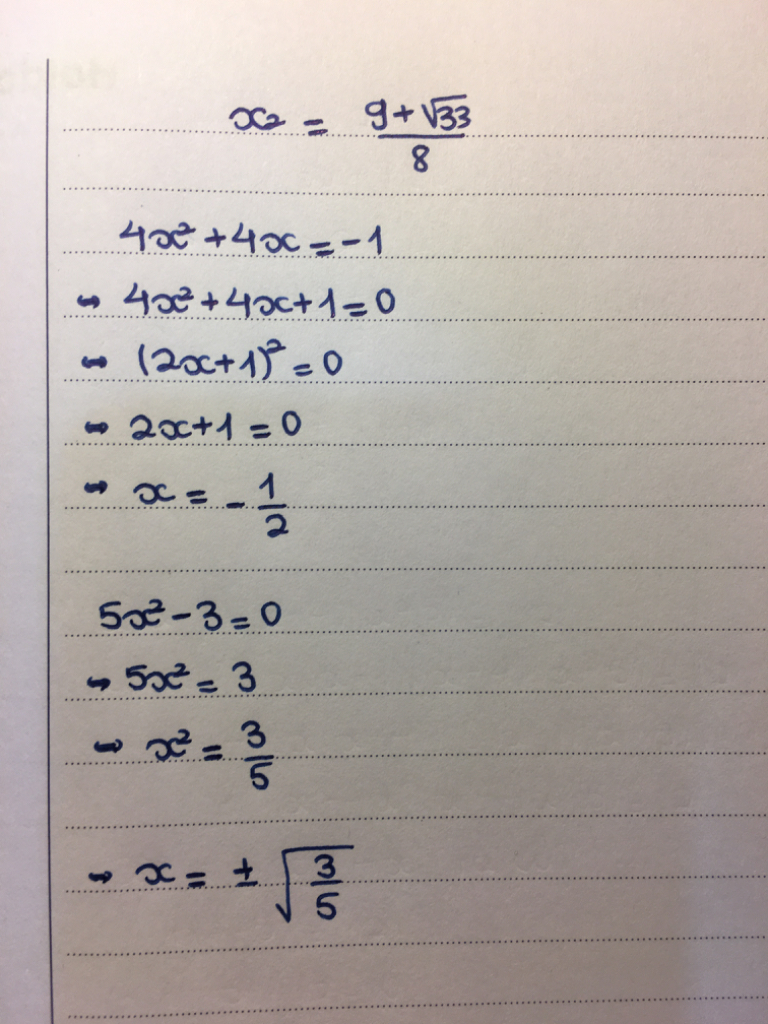 x₂ = (9+√33)/8
4x²+4x=-1
↔ 4x²+4x+1=0
↔ (2x+1)²=0
↔ 2x+1=0
↔ x = -1/2
5x²-3=0
↔ 5x²=3
↔ x²=3/5
↔ x = ±√(3/5)